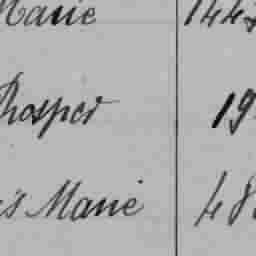 Marie 144
Prosper 19
is Marie 48